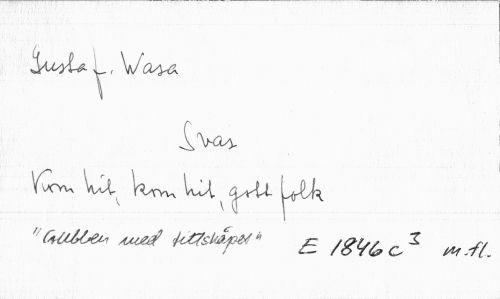 Gustaf. Wasa
Svar
Kom hit, kom hit, gott folk
"Gubben med tittskåpet" E 1846 c 3 m.fl.